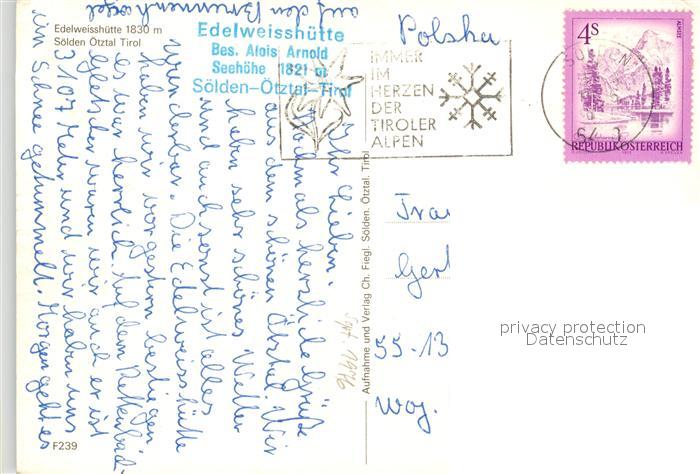 Edelweisshütte 1830 m
Sölden Ötztal Tirol
Edelweisshütte
Bes. Alois Arnold
Seehöhe 1821 m
Sölden-Ötztal-Tirol
IMMER
IM
HERZEN
DER
TIROLER
ALPEN
4S
REPUBLIK ÖSTERREICH
Polska
Ihr Lieben!
Nochmals herzliche Grüße
aus dem schönen Ötztal. Wir
haben sehr schönes Wetter
und auch sonst ist alles
wunderbar. Die Edelweisshütte
haben wir vorgestern bestiegen
es war herrlich. Auf dem
Gletscher waren wir auch er ist
3107 Meter und wir haben uns
im Schnee getummelt. Morgen geht es
auf den Brunnenkogel
Aufnahme und Verlag Ch. Fiegl, Sölden, Ötztal, Tirol
Spt. 1976
55-13
Woj.
F239
privacy protection
Datenschutz